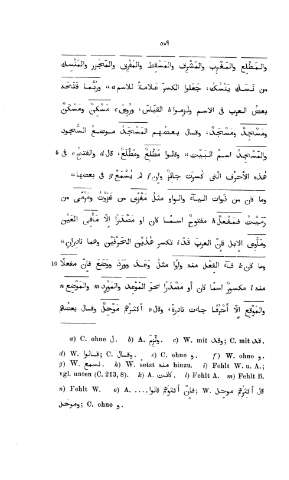 ٥٥٩
والمَطْلِع والمَغْرِب والمَشْرِق والمَسْقِط والمَفْرِق والمَجْزِر والمَنْسِك
من نَسَك يَنْسُك، جعلوا الكسر علامةً للاسم، وربّما فتحه
بعض العرب فى الاسم ولزموا القياس، ورُوى مَسْكَن ومَسْكِن
ومَسْجِد ومَسْجَد، وقال بعضهم المَسْجَد موضع السجود
والمَسْجِد اسم البيت، وقالوا مَطْلَع ومَطْلِع، قال والفتح فى
هذه الأحرف التى كسرت جائز وإن لم يُسْمَع فى بعضها
وما كان من ذوات الياء والواو مثل مَغْزًى من غَزَوْت ومَرْمًى من
رَمَيْت فمَفْعَل مفتوح اسما كان أو مصدرًا إلّا مَأْقِى العَيْن
ومَأْوِى الإبل فإنّ العرب قد تكسر هذين الحرفين وهما نادران،
وما كان فاء الفعل منه واوًا مثل وعد وورد ووضع فإنّ مَفْعِلًا 10
منه مكسور اسما كان أو مصدرًا نحو المَوْعِد والمَوْرِد والمَوْضِع
والمَوْقِع إلّا أحرفًا جاءت نادرة، قال أكثرهم مَوْحِل وقال بعضهم
a) C. ohne ل. b) A. c) W. mit قد; C. mit قد.
d) W. قالوا; C. وقال. e) C. ohne و. f) W. ohne و.
g) W. نسمع. h) W. setzt منه hinzu. i) Fehlt W. u. A.;
vgl. unten (C. 213, 8). k) A. كانت. l) Fehlt A. m) Fehlt B.
n) Fehlt W. o) A. قالوا.... فإنّ أكثرهم; W. قال أكثرهم موحل
وموحل; C. ohne و.